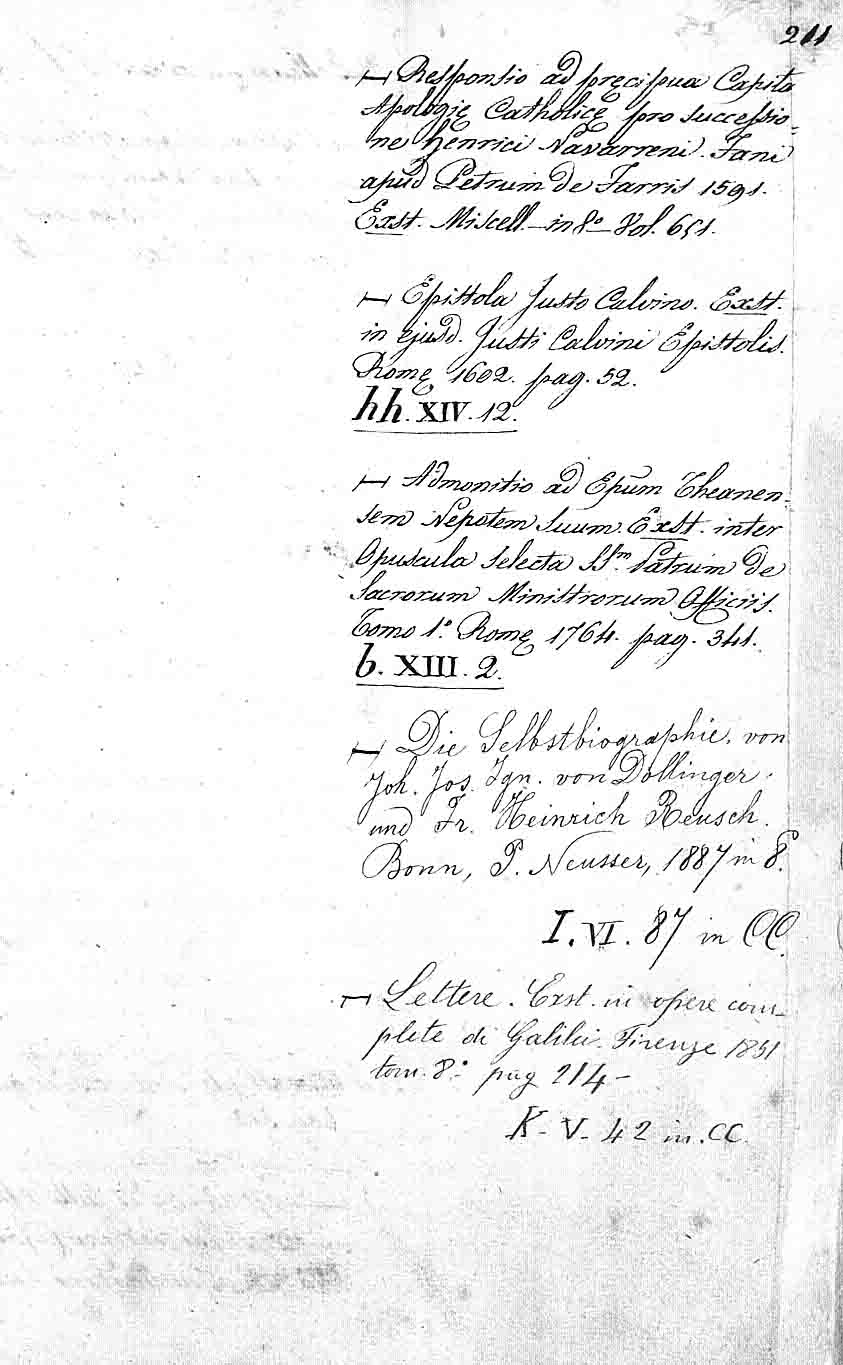 211
— Responsio ad pręcipua Capita
Apologię Catholicę pro successio-
ne Henrici Navarreni. Fani
apud Petrum de Farris 1591.
Exst. Miscell. in 8º Vol. 651.
— Epistola Justo Calvino. Exst.
in ejusd. Justi Calvini Epistolis.
Romę 1602. pag. 52.
hh. XIV. 12.
— Admonitio ad Epum Theanen-
sem Nepotem suum. Exst. inter
Opuscula selecta SS.m Patrum de
Sacrorum Ministrorum Officiis.
Tomo 1.º Romę 1764. pag. 341.
b. XIII. 2.
— Die Selbstbiographie, von
Joh. Jos. Ign. von Döllinger
und Fr. Heinrich Reusch.
Bonn, P. Neusser, 1887 in 8.º
I. VI. 87 in CC.
— Lettere. Exst. in opere com-
plete di Galilei. Firenze 1851
tom. 8.º pag 214-
K- V- 42 in. CC.